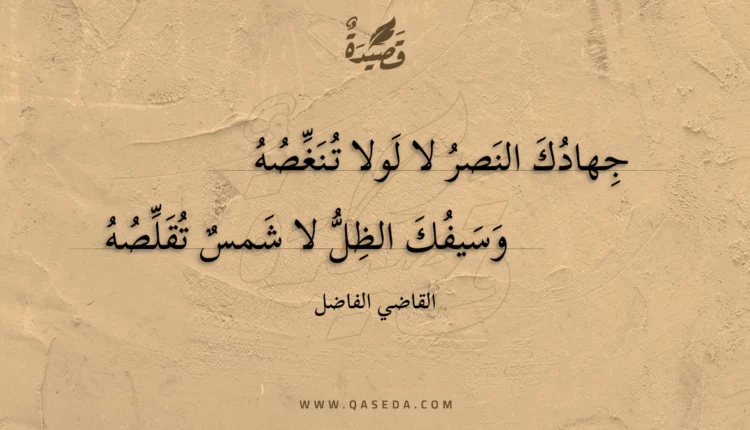 قَصِيدَةٌ
جِهادُكَ النَصرُ لا لَولا تُنَغِّصُهُ
وَسَيفُكَ الظِلُّ لا شَمسٌ تُقَلِّصُهُ
القاضي الفاضل
WWW.QASEDA.COM